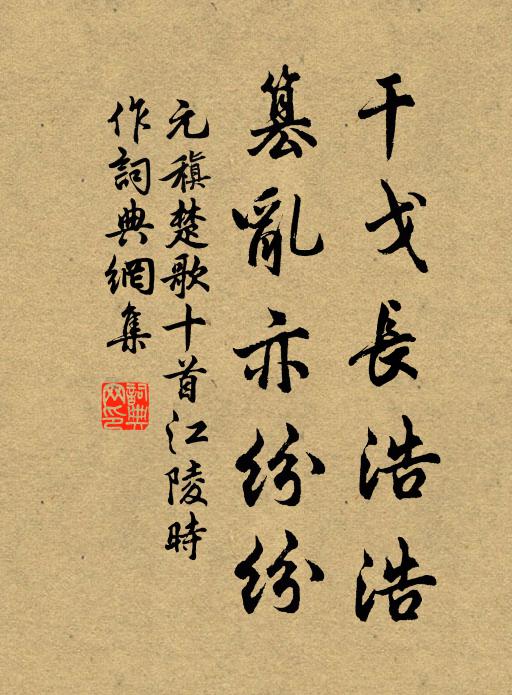 干戈長浩浩
篡亂亦紛紛
元稹楚歌十首江陵時
作詞典網集
詞典網印